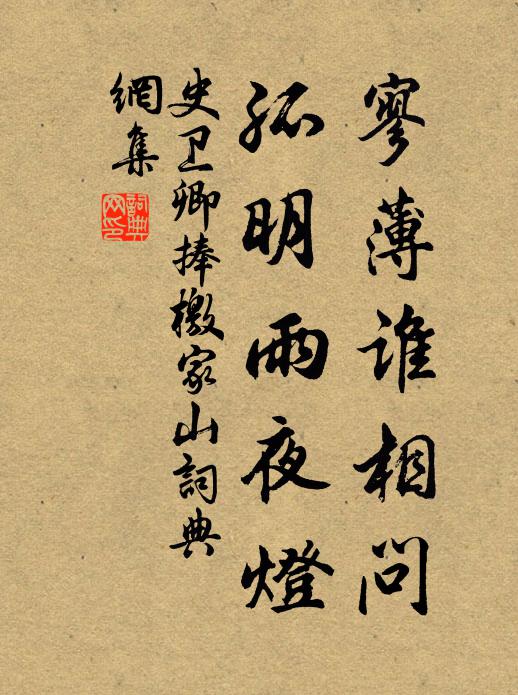 寥薄谁相问
孤明雨夜燈
史卫卿捧檄家山詞典
網集
詞典網印